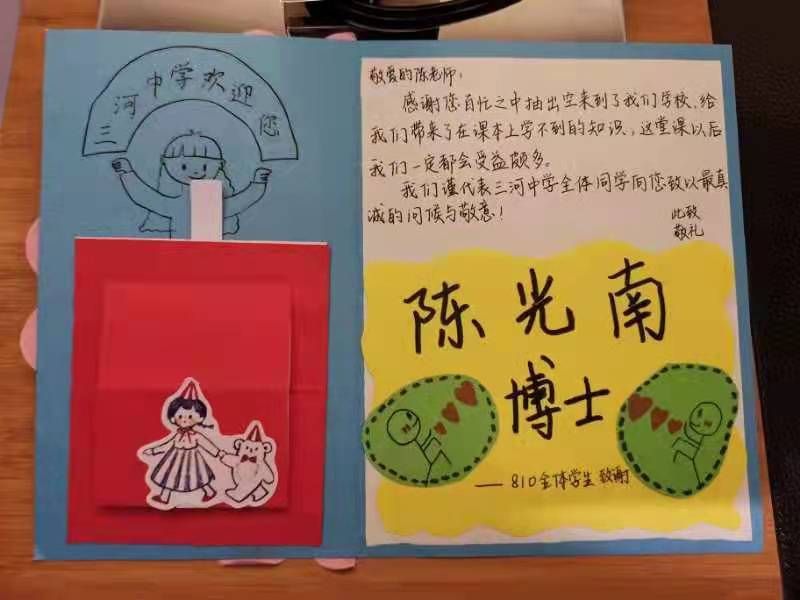 三河中学欢迎您
敬爱的陈老师：
感谢您百忙之中抽出空来到了我们学校，给
我们带来了在课本上学不到的知识，这堂课以后
我们一定都会受益颇多。
我们谨代表三河中学全体同学向您致以最真
诚的问候与敬意！
此致
敬礼
陈光南
博士
——810全体学生 致谢